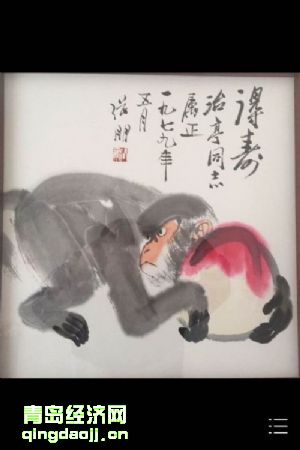 得寿
治亭同志
属正
一九七九年
五月
张朋
青岛经济网
qingdaojj.cn